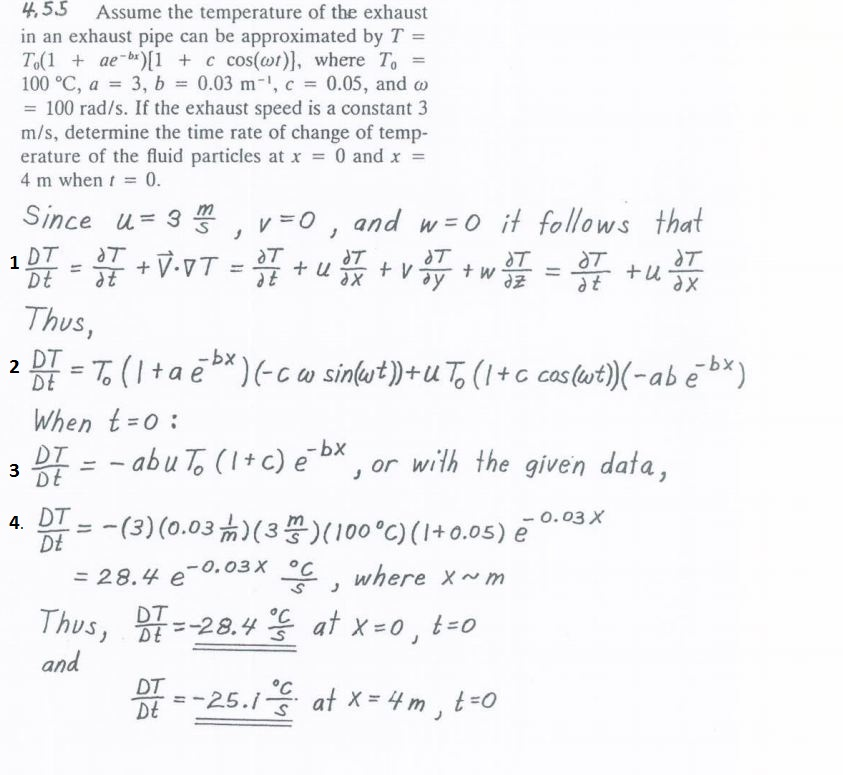 4.55 Assume the temperature of the exhaust
in an exhaust pipe can be approximated by T =
T₀(1 + ae⁻ᵇˣ)[1 + c cos(ωt)], where T₀ =
100 °C, a = 3, b = 0.03 m⁻¹, c = 0.05, and ω
= 100 rad/s. If the exhaust speed is a constant 3
m/s, determine the time rate of change of temp-
erature of the fluid particles at x = 0 and x =
4 m when t = 0.
Since u = 3 m/s , v = 0 , and w = 0 it follows that
1 DT/Dt = ∂T/∂t + V⃗·∇T = ∂T/∂t + u ∂T/∂x + v ∂T/∂y + w ∂T/∂z = ∂T/∂t + u ∂T/∂x
Thus,
2 DT/Dt = T₀ (1 + a e⁻ᵇˣ)(-c ω sin(ωt)) + u T₀ (1 + c cos(ωt))(-ab e⁻ᵇˣ)
When t = 0 :
3 DT/Dt = - abu T₀ (1+c) e⁻ᵇˣ , or with the given data,
4. DT/Dt = -(3)(0.03 1/m)(3 m/s)(100 °C)(1+0.05) e^-0.03x
= 28.4 e^-0.03x °C/s , where x ~ m
Thus, DT/Dt = -28.4 °C/s at x = 0 , t = 0
and
DT/Dt = -25.1 °C/s at x = 4 m , t = 0